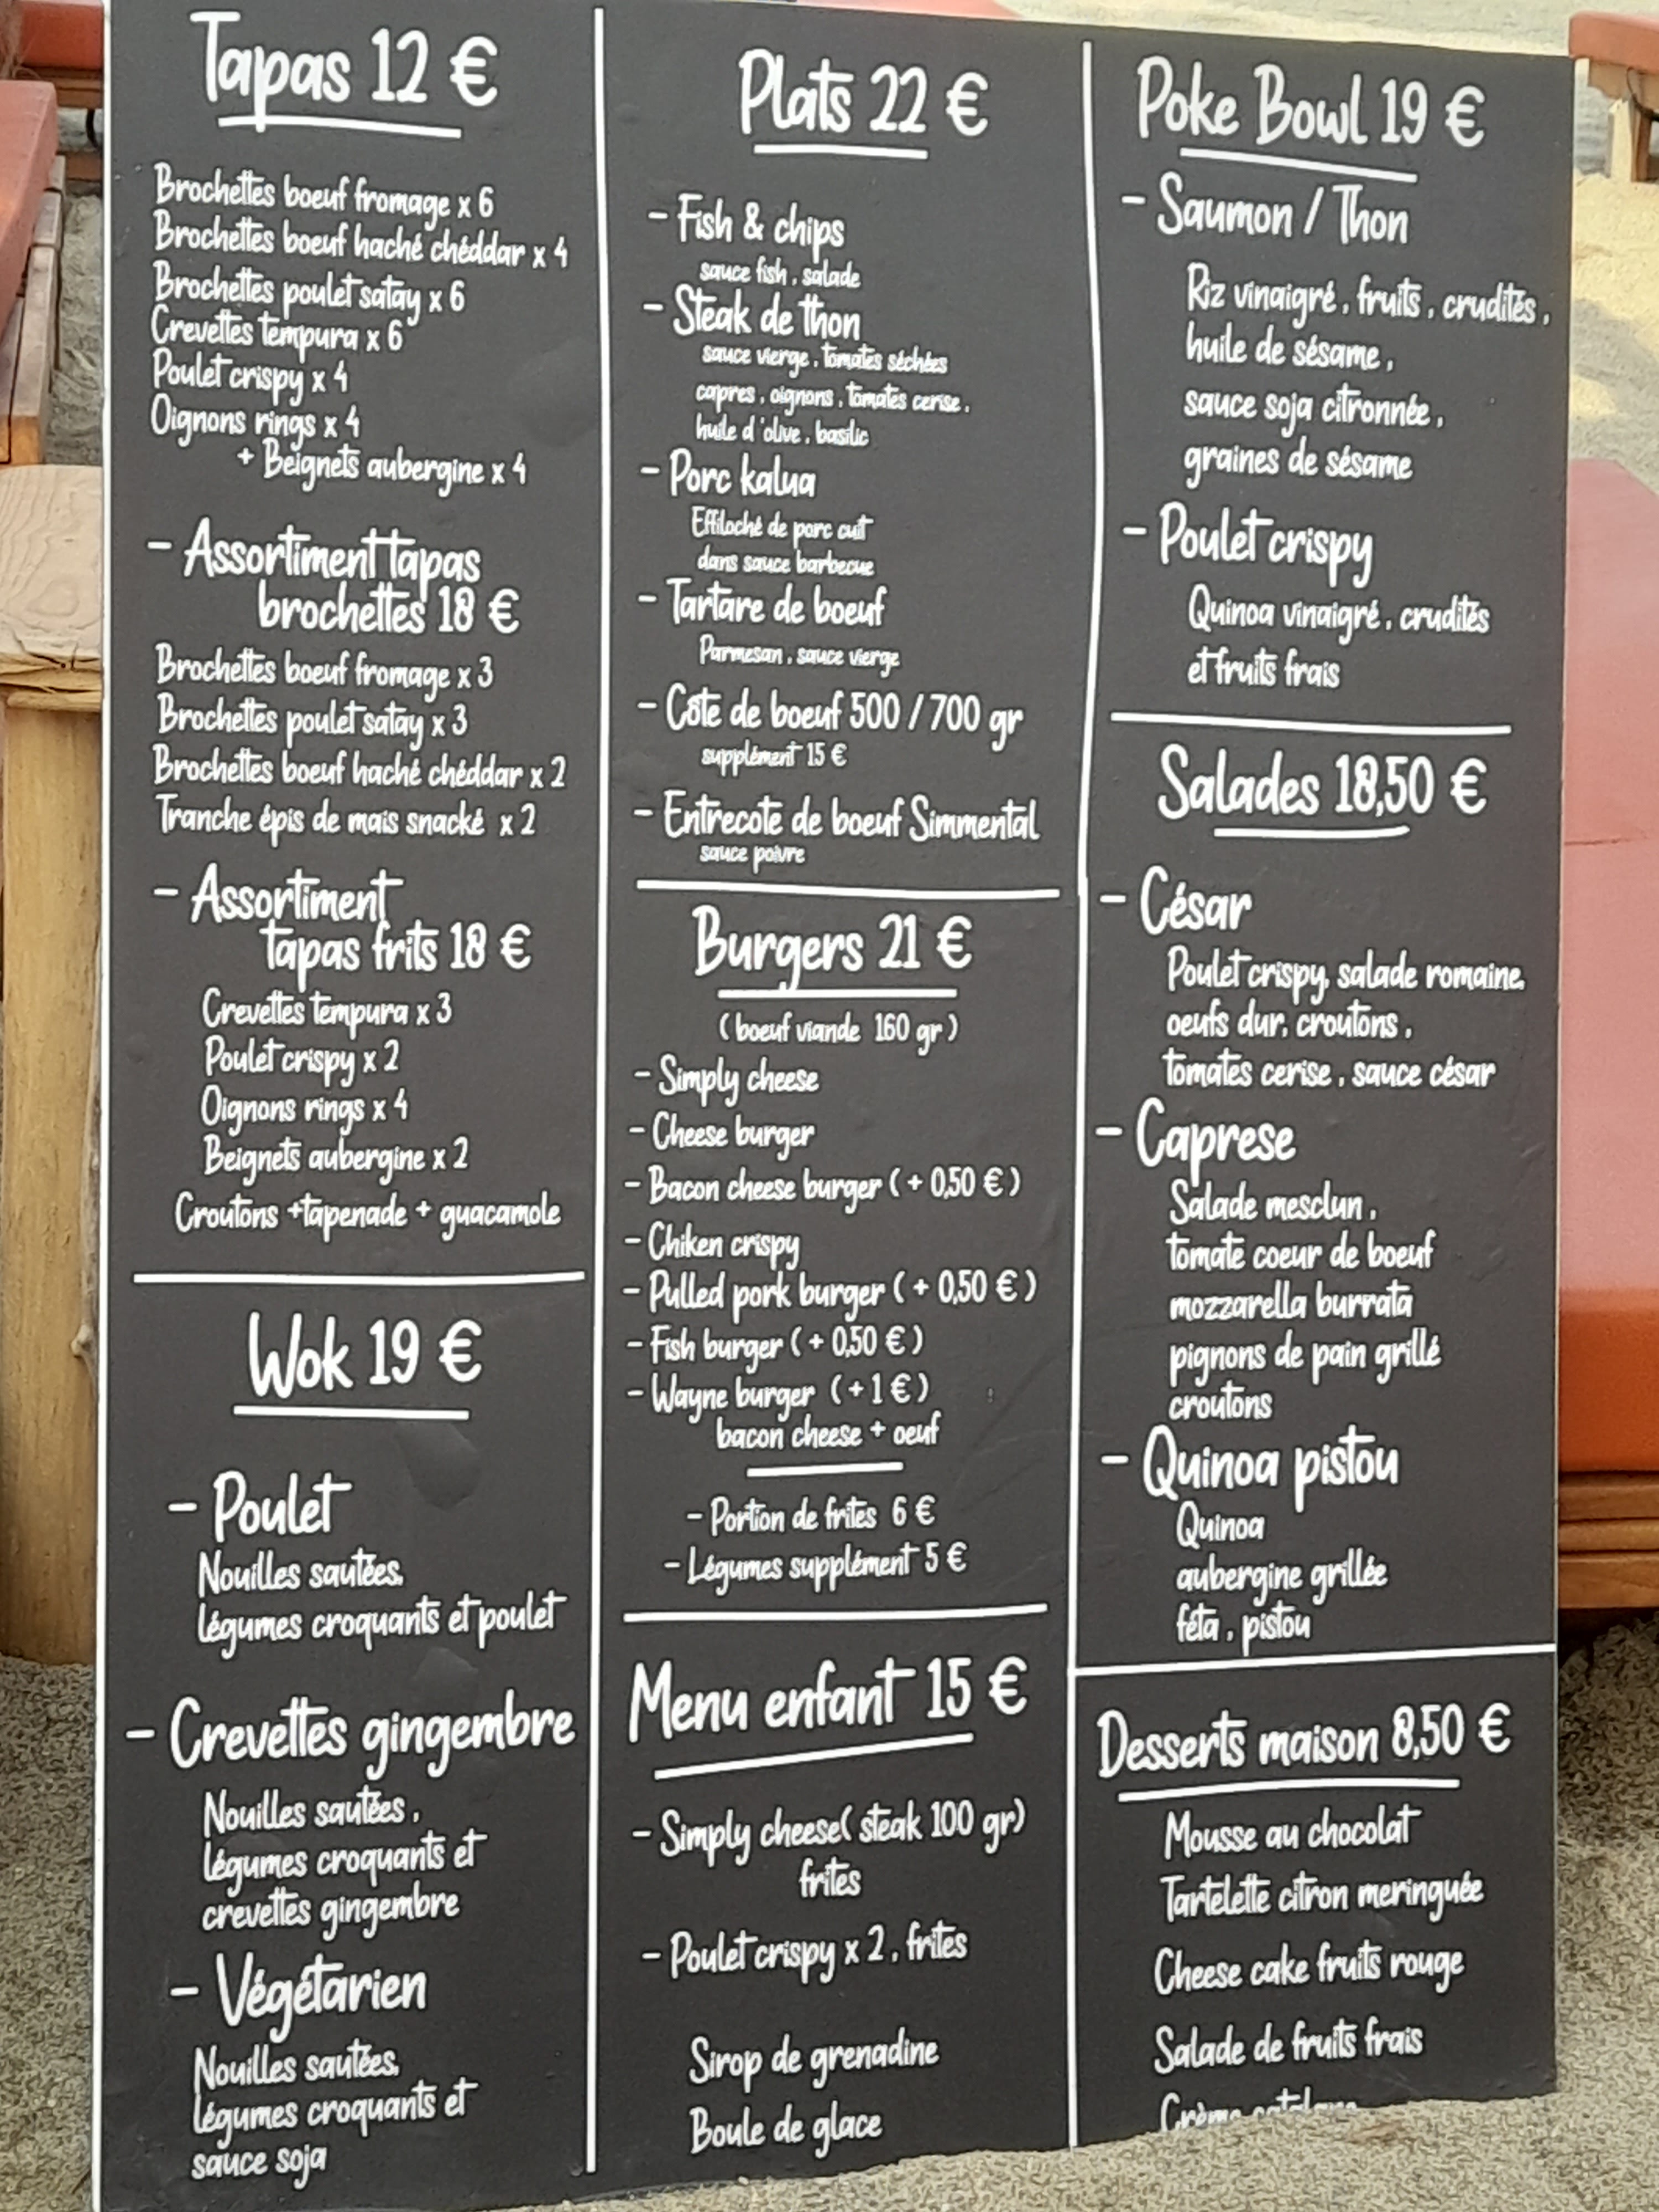 Tapas 12 €
Brochettes boeuf fromage x 6
Brochettes boeuf haché chéddar x 4
Brochettes poulet satay x 6
Crevettes tempura x 6
Poulet crispy x 4
Oignons rings x 4
+ Beignets aubergine x 4
- Assortiment tapas
brochettes 18 €
Brochettes boeuf fromage x 3
Brochettes poulet satay x 3
Brochettes boeuf haché chéddar x 2
Tranche épis de mais snacké x 2
- Assortiment
tapas frits 18 €
Crevettes tempura x 3
Poulet crispy x 2
Oignons rings x 4
Beignets aubergine x 2
Croutons +tapenade + guacamole
Wok 19 €
- Poulet
Nouilles sautées,
légumes croquants et poulet
- Crevettes gingembre
Nouilles sautées,
légumes croquants et
crevettes gingembre
- Végétarien
Nouilles sautées,
légumes croquants et
sauce soja
Plats 22 €
- Fish & chips
sauce fish, salade
- Steak de thon
sauce vierge, tomates séchées
capres, oignons, tomates cerise,
huile d'olive, basilic
- Porc kalua
Effiloché de porc cuit
dans sauce barbecue
- Tartare de boeuf
Parmesan, sauce vierge
- Côte de boeuf 500 / 700 gr
supplément 15 €
- Entrecote de boeuf Simmental
sauce poivre
Burgers 21 €
( boeuf viande 160 gr )
- Simply cheese
- Cheese burger
- Bacon cheese burger ( + 0,50 € )
- Chiken crispy
- Pulled pork burger ( + 0,50 € )
- Fish burger ( + 0,50 € )
- Wayne burger ( + 1 € )
bacon cheese + oeuf
- Portion de frites 6 €
- Légumes supplément 5 €
Menu enfant 15 €
- Simply cheese( steak 100 gr)
frites
- Poulet crispy x 2, frites
Sirop de grenadine
Boule de glace
Poke Bowl 19 €
- Saumon / Thon
Riz vinaigré, fruits, crudités,
huile de sésame,
sauce soja citronnée,
graines de sésame
- Poulet crispy
Quinoa vinaigré, crudités
et fruits frais
Salades 18,50 €
- César
Poulet crispy, salade romaine,
oeufs dur, croutons,
tomates cerise, sauce césar
- Caprese
Salade mesclun,
tomate coeur de boeuf
mozzarella burrata
pignons de pain grillé
croutons
- Quinoa pistou
Quinoa
aubergine grillée
féta, pistou
Desserts maison 8,50 €
Mousse au chocolat
Tartelette citron meringuée
Cheese cake fruits rouge
Salade de fruits frais
Crème catalane